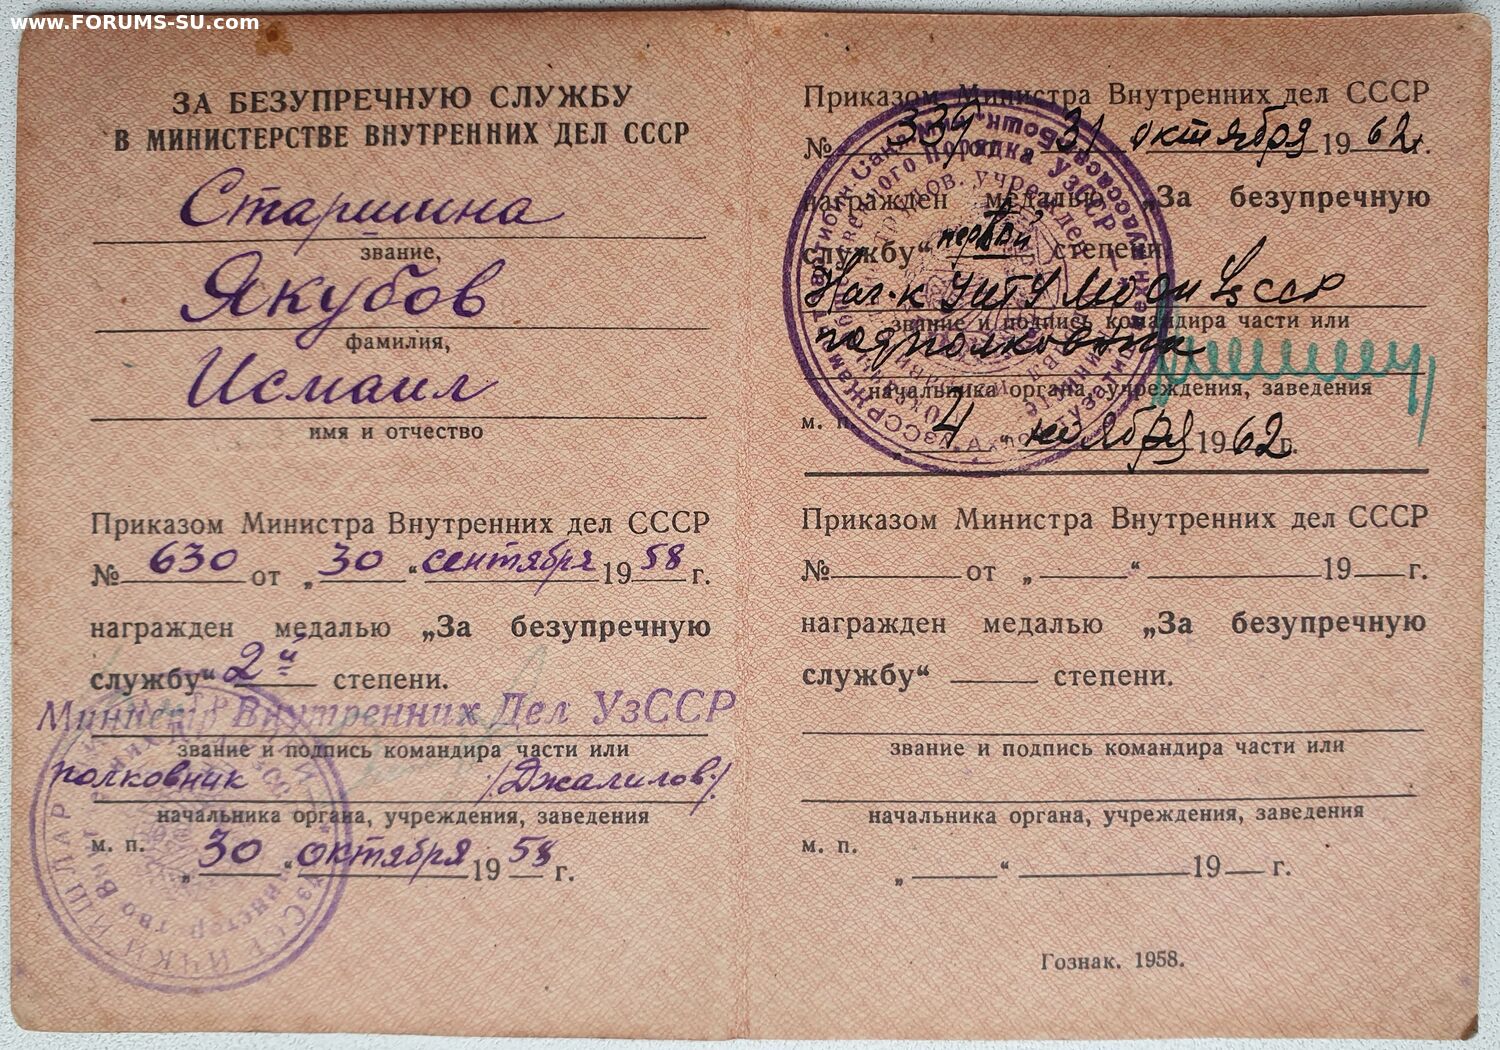 www.FORUMS-SU.com
ЗА БЕЗУПРЕЧНУЮ СЛУЖБУ
В МИНИСТЕРСТВЕ ВНУТРЕННИХ ДЕЛ СССР
Старшина
звание,
Якубов
фамилия,
Исмаил
имя и отчество
Приказом Министра Внутренних дел СССР
№ 630 от „ 30 “ сентября 19 58 г.
награжден медалью „За безупречную
службу“ 2й степени.
Министр Внутренних Дел УзССР
звание и подпись командира части или
полковник /Джалилов/
начальника органа, учреждения, заведения
м. п. 30 “ октября 19 58 г.
Приказом Министра Внутренних дел СССР
№ 339 31 октября 19 62 г.
награжден медалью „За безупречную
службу“ первой степени
Нач-к УИТУ МООП УзССР
звание и подпись командира части или
подполковник
начальника органа, учреждения, заведения
м. п. „ 4 “ ноября 19 62 г.
Приказом Министра Внутренних дел СССР
№ от „ “ 19 г.
награжден медалью „За безупречную
службу“ степени.
звание и подпись командира части или
начальника органа, учреждения, заведения
м. п.
„ “ 19 г.
Гознак. 1958.